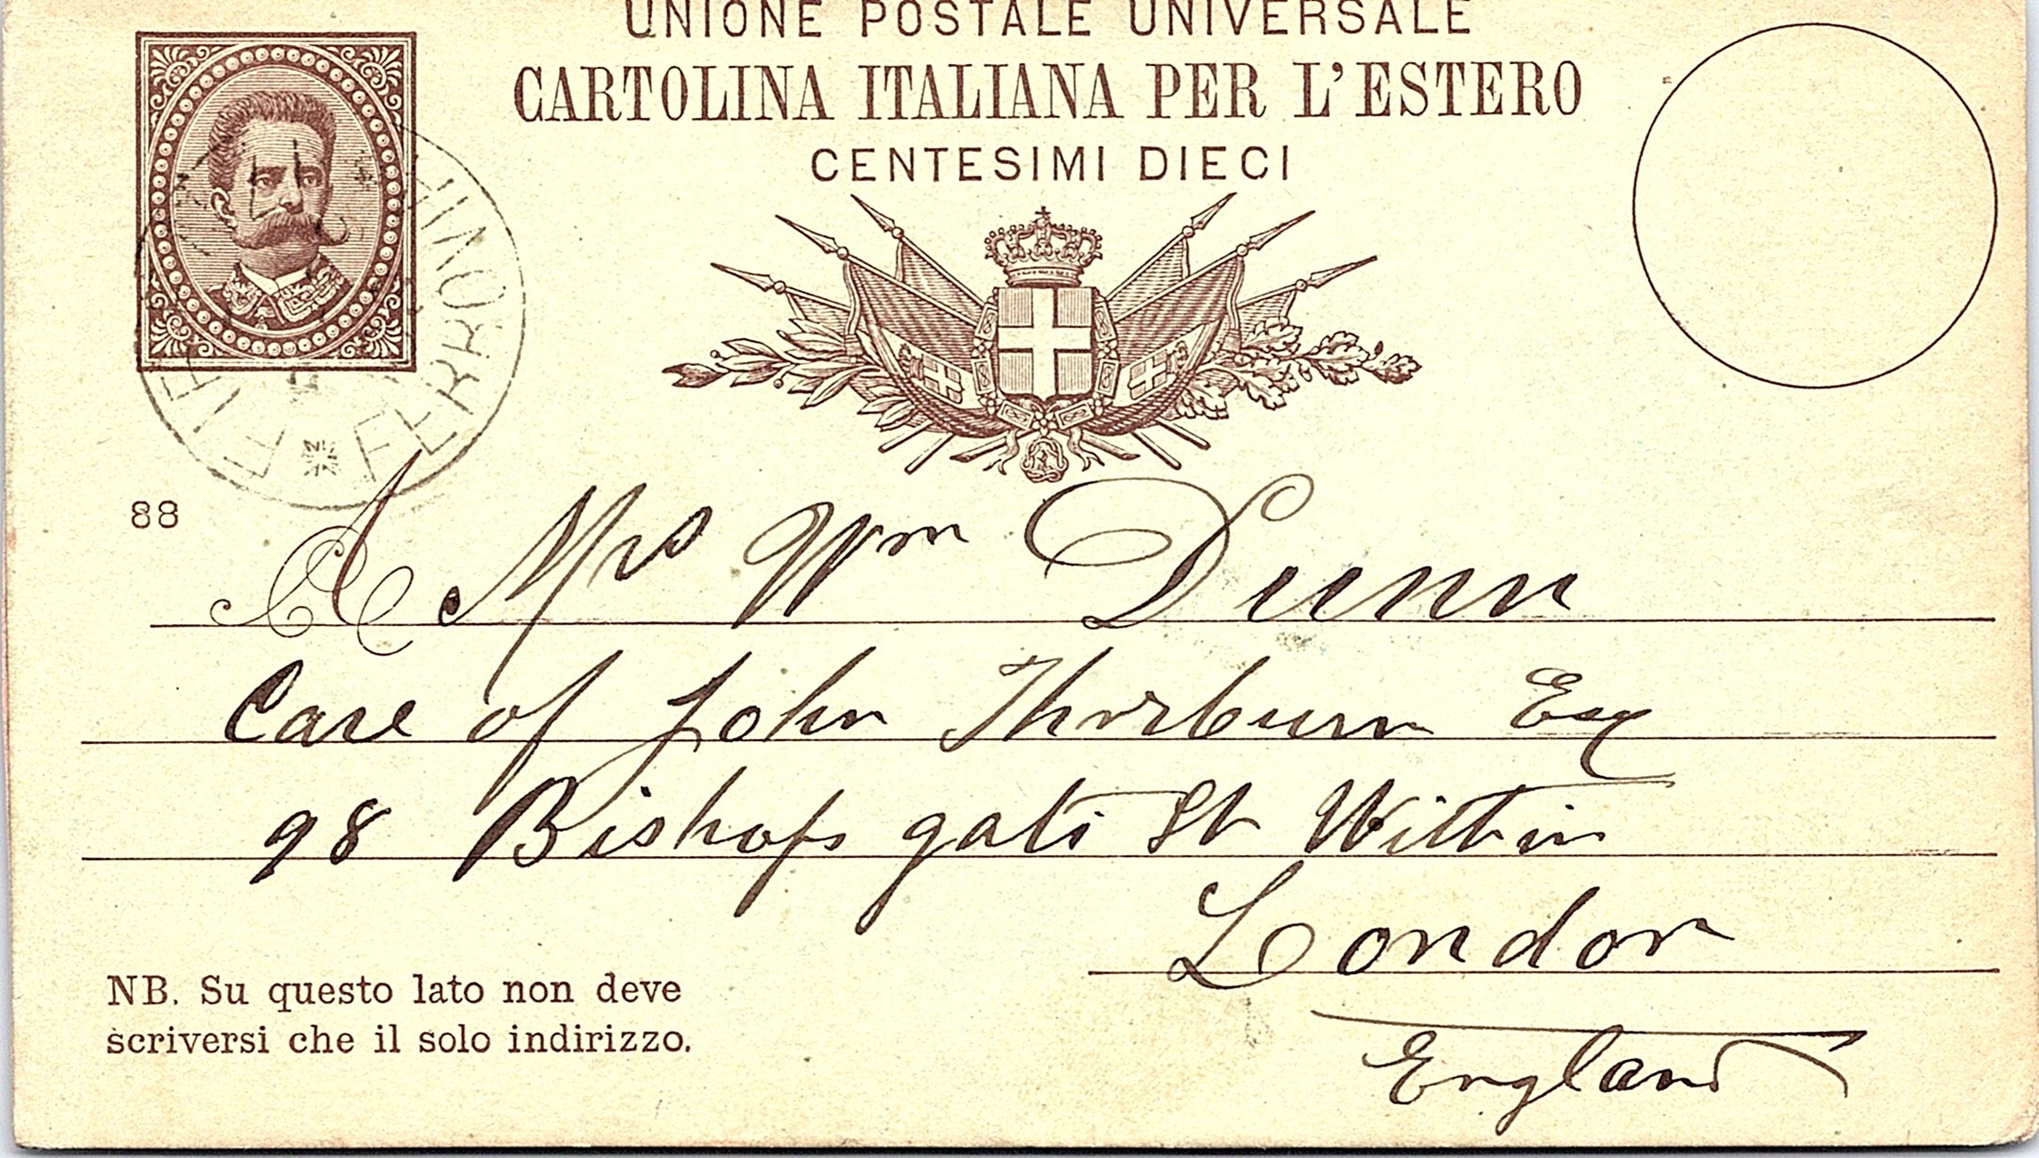 UNIONE POSTALE UNIVERSALE
CARTOLINA ITALIANA PER L'ESTERO
CENTESIMI DIECI
FERROVIA
88
A Mrs Wm Dunn
Care of John Thorburn Esq
98 Bishops gate St Within
London
England
NB. Su questo lato non deve
scriversi che il solo indirizzo.